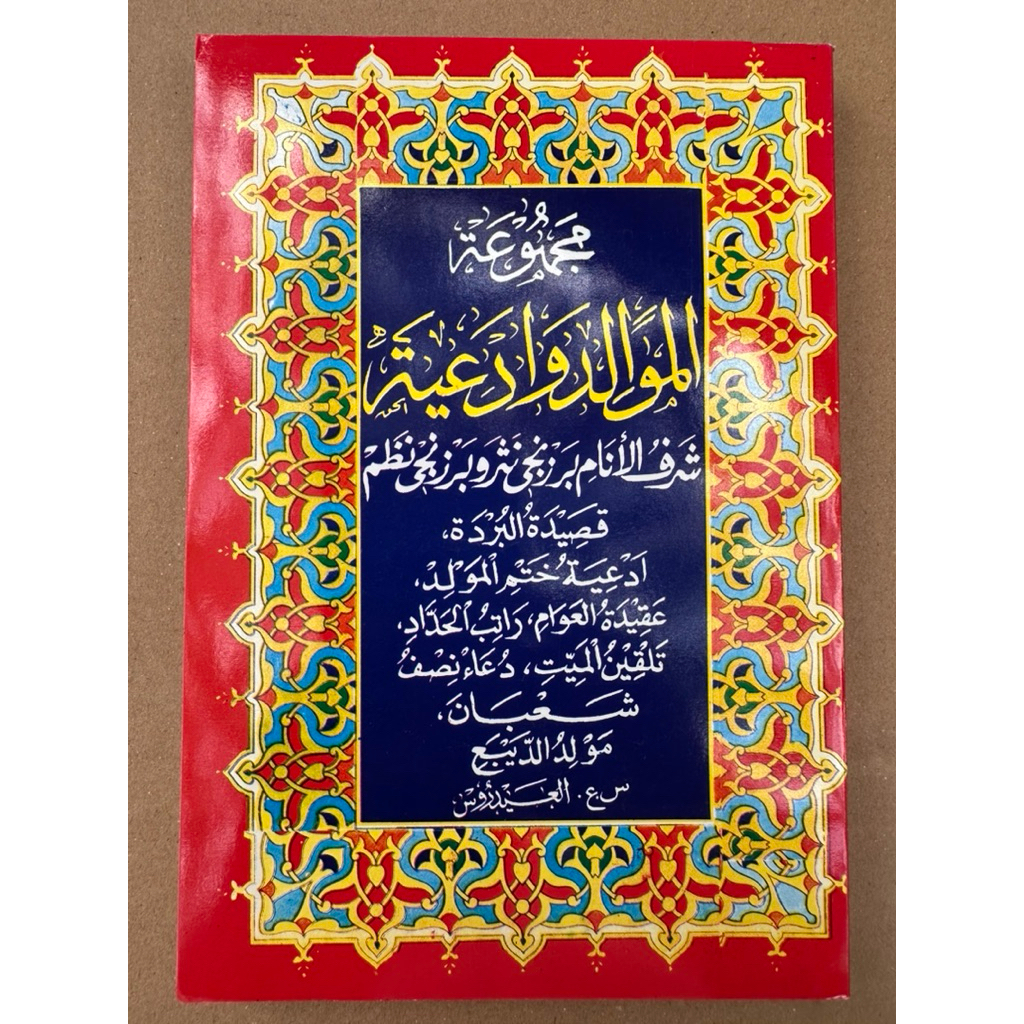 مَجْمُوعَة
المَوَالِد وَادْعِيَة
شَرَفُ الأَنَامِ بَرْزَنْجِي نَثْر وَبَرْزَنْجِي نَظْمْ
قَصِيْدَةُ البُرْدَة،
ادْعِيَةُ خَتْمِ المَوْلِدْ،
عَقِيْدَةُ العَوَامِ، رَاتِبُ الحَدَّادِ،
تَلْقِيْنُ المَيِّتِ، دُعَاءْ نِصْفُ
شَعْبَانَ،
مَوْلِدُ الدَّيْبَعِ
س.ع. العَيْدَرُوس